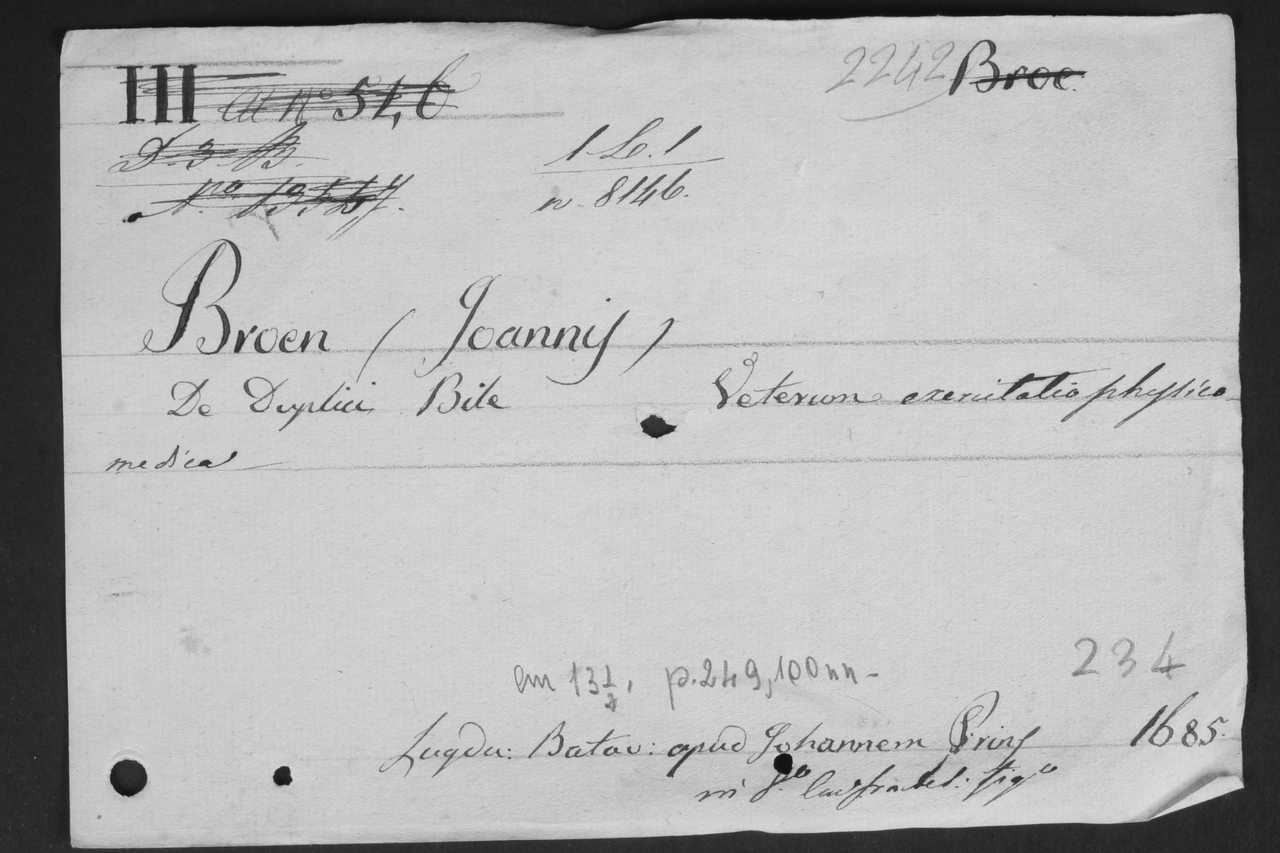 III ad nº 51,b
2242 Broe
D. 3. B.
Nº 13547.
1. L. 1
n. 8146.
Broen (Joannis)
De Duplici Bile Veterum exercitatio physico
medica
cm 13½, p. 249, 100 nn-
234
Lugdu: Batav: apud Johannem Prins 1685.
in 8º